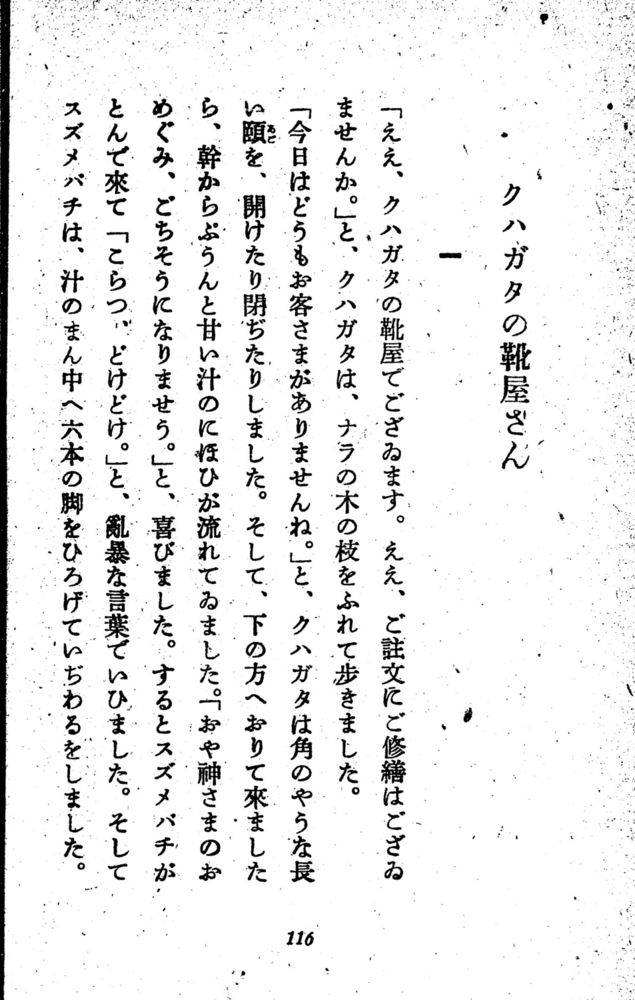 クハガタの靴屋さん
一
「ええ、クハガタの靴屋でござゐます。ええ、ご註文にご修繕はござゐ
ませんか。」と、クハガタは、ナラの木の枝をふれて歩きました。
「今日はどうもお客さまがありませんね。」と、クハガタは角のやうな長
い頤を、開けたり閉ぢたりしました。そして、下の方へおりて來ました
ら、幹からぷうんと甘い汁のにほひが流れてゐました。「おや神さまのお
めぐみ、ごちそうになりませう。」と、喜びました。するとスズメバチが
とんで來て「こらつ、どけどけ。」と、亂暴な言葉でいひました。そして
スズメバチは、汁のまん中へ六本の脚をひろげていぢわるをしました。
116